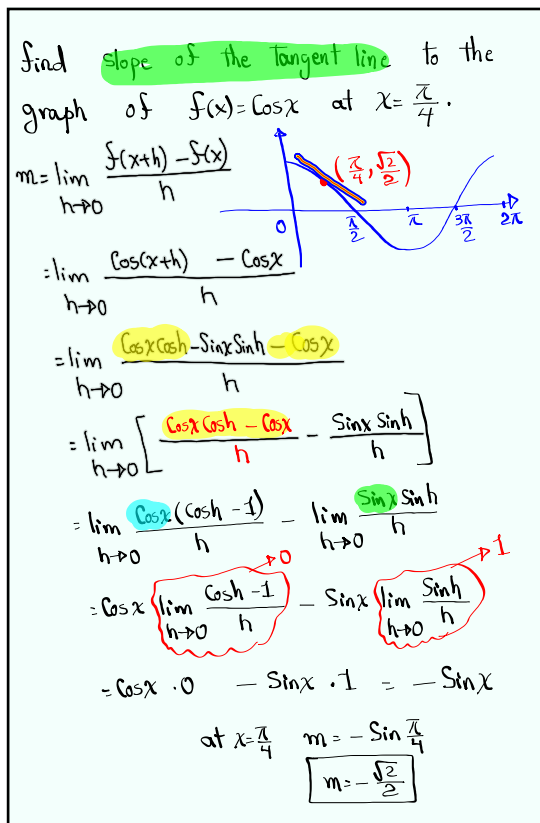 find slope of the tangent line to the
graph of f(x)=Cosx at x= π/4.
m= lim h→0 (f(x+h) - f(x))/h
(π/4, √2/2)
0 π/2 π 3π/2 2π
= lim h→0 (Cos(x+h) - Cosx)/h
= lim h→0 (Cosx Cosh - Sinx Sinh - Cosx)/h
= lim h→0 [(Cosx Cosh - Cosx)/h - (Sinx Sinh)/h]
= lim h→0 (Cosx (Cosh - 1))/h - lim h→0 (Sinx Sinh)/h
→0 →1
= Cosx lim h→0 (Cosh - 1)/h - Sinx lim h→0 (Sinh)/h
= Cosx · 0 - Sinx · 1 = - Sinx
at x= π/4 m= - Sin π/4
m= - √2/2